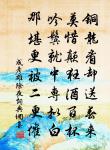 銅龍看却送春来
莫惜顛狂酒百杯
吟鬢就中專擬白
那堪更被二更催
成彦雄除夜